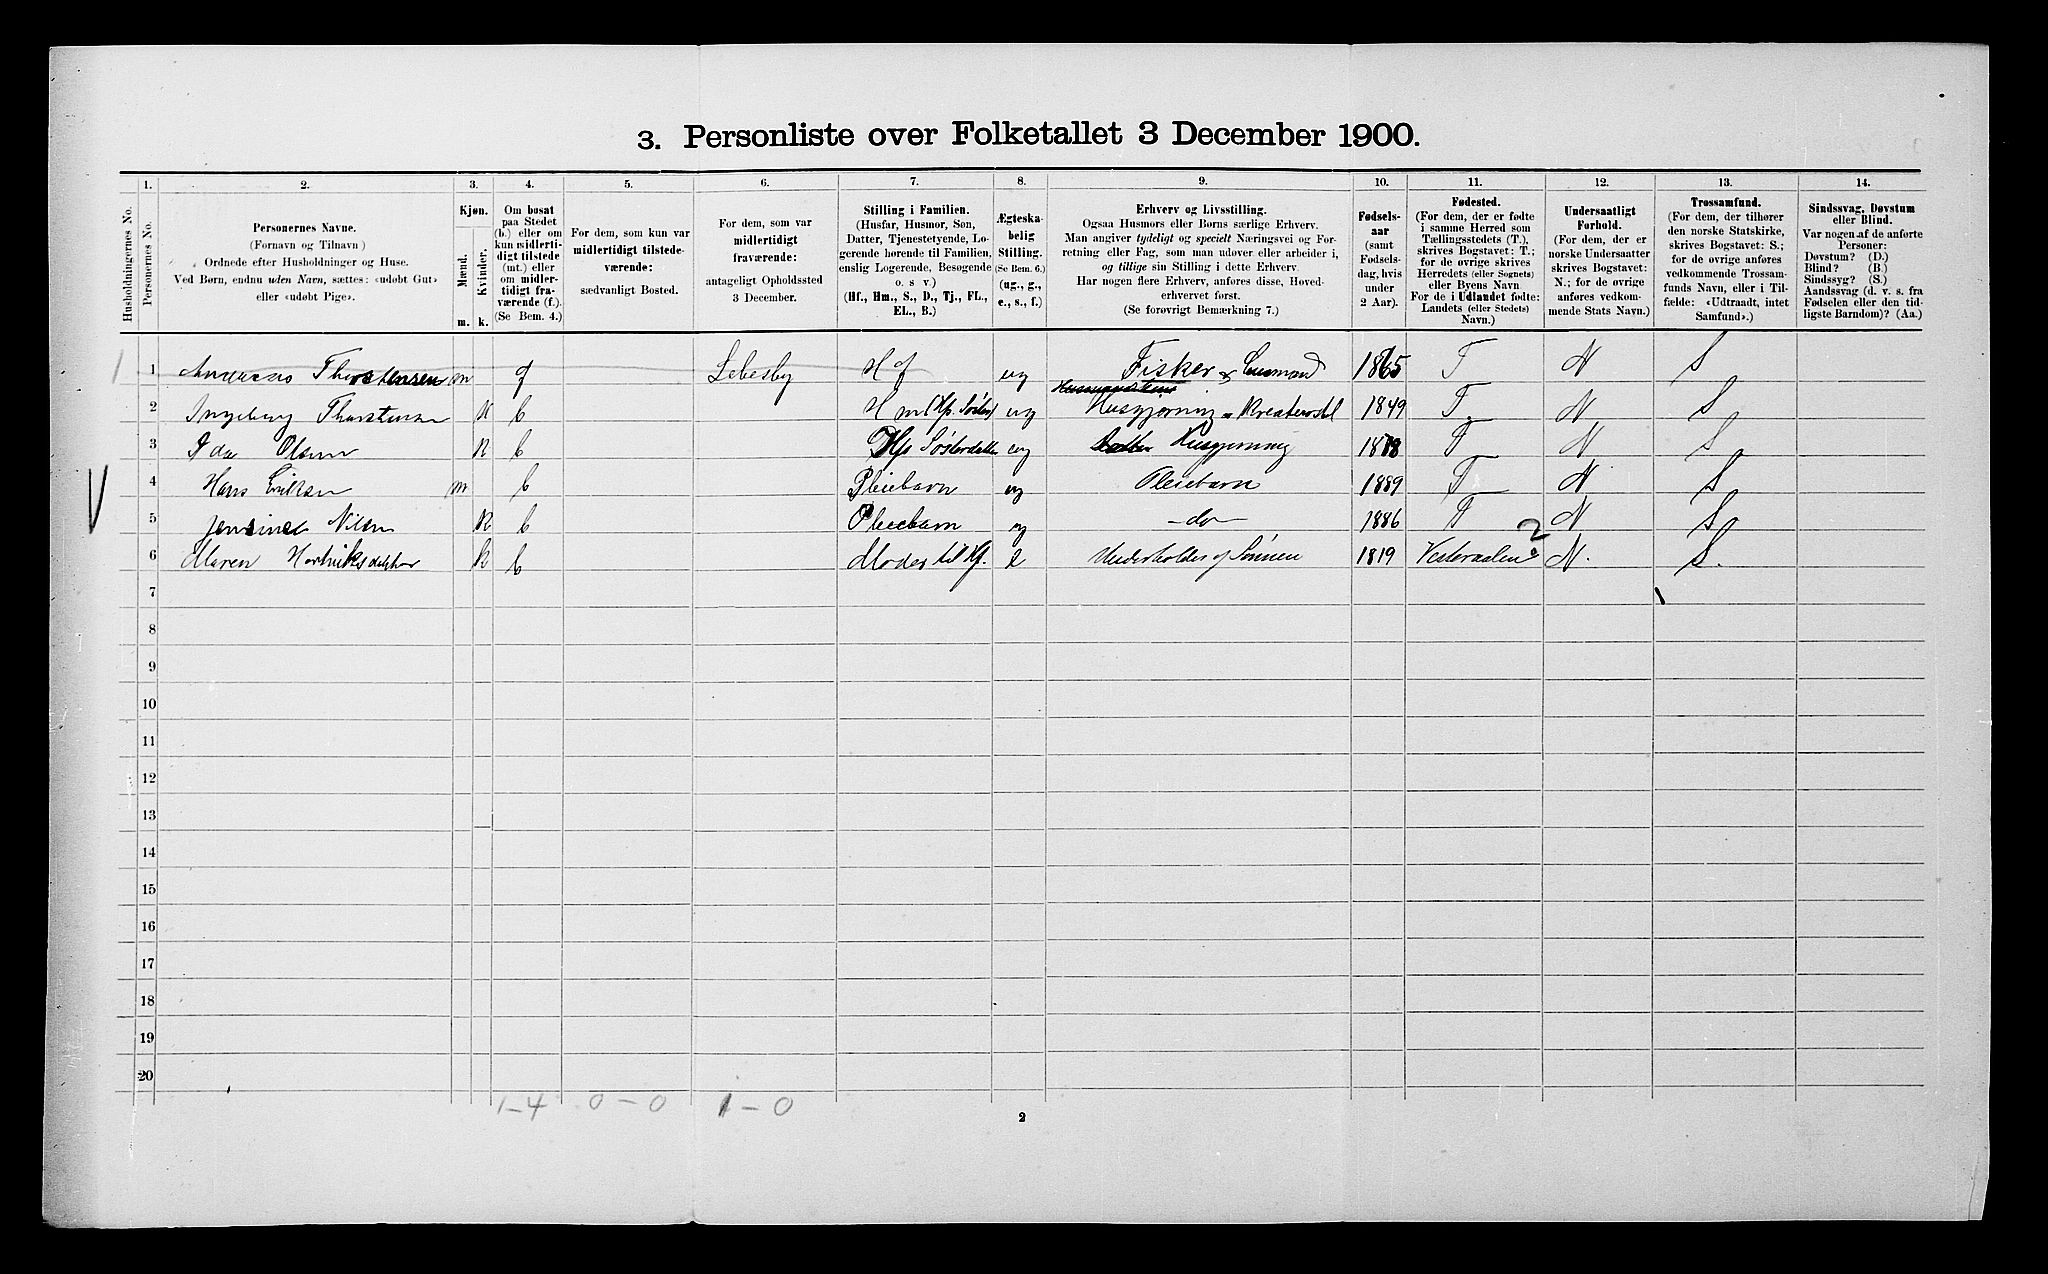 3. Personliste over Folketallet 3 December 1900.
Husholdningernes No.
1. Personernes No.
2. Personernes Navne.
(Fornavn og Tilnavn)
Ordnede efter Husholdninger og Huse.
Ved Børn, endnu uden Navn, sættes: «udøbt Gut»
eller «udøbt Pige».
3. Kjøn.
Mænd. m.
Kvinder. k.
4. Om bosat
paa Stedet
(b.) eller om
kun midlerti-
digt tilstede
(mt.) eller
om midler-
tidigt fra-
værende (f.)
(Se Bem. 4.)
5. For dem, som kun var
midlertidigt tilstede-
værende:
sædvanligt Bosted.
6. For dem, som var
midlertidigt
fraværende:
antageligt Opholdssted
3 December.
7. Stilling i Familien.
(Husfar, Husmor, Søn,
Datter, Tjenestetyende, Lo-
gerende hørende til Familien,
enslig Logerende, Besøgende
o. s v.)
(Hf., Hm., S., D., Tj., FL.,
EL., B.)
8. Ægteska-
belig
Stilling.
(Se Bem. 6.)
(ug., g.,
e., s., f.)
9. Erhverv og Livsstilling.
Ogsaa Husmors eller Børns særlige Erhverv.
Man angiver tydeligt og specielt Næringsvei og For-
retning eller Fag, som man udøver eller arbeider i,
og tillige sin Stilling i dette Erhverv.
Har nogen flere Erhverv, anføres disse, Hoved-
erhvervet først.
(Se forøvrigt Bemærkning 7.)
10. Fødsels-
aar
(samt
Fødsels-
dag, hvis
under
2 Aar).
11. Fødested.
(For dem, der er fødte
i samme Herred som
Tællingsstedets (T.),
skrives Bogstavet: T.;
for de øvrige skrives
Herredets (eller Sognets)
eller Byens Navn
For de i Udlandet fødte:
Landets (eller Stedets)
Navn.)
12. Undersaatligt
Forhold.
(For dem, der er
norske Undersaatter
skrives Bogstavet:
N.; for de øvrige
anføres vedkom-
mende Stats Navn.)
13. Trossamfund.
(For dem, der tilhører
den norske Statskirke,
skrives Bogstavet: S.;
for de øvrige anføres
vedkommende Trossam-
funds Navn, eller i Til-
fælde: «Udtraadt, intet
Samfund».)
14. Sindssvag, Døvstum
eller Blind.
Var nogen af de anførte
Personer:
Døvstum? (D.)
Blind? (B.)
Sindssyg? (S.)
Aandssvag (d. v. s. fra
Fødselen eller den tid-
ligste Barndom)? (Aa.)
1 1 Thorstensen m f Lebesby Hf ug Fisker 1865 T N S
2 Ingeborg Thorstensen K b Hm (Hf. Søster) ug Husgjerning Kreaturstel 1849 T. N S
3 Ida Olsen K b Hfs Søsterdatter ug Husgjerning 1878 T N S
4 Hans Eriksen m b Pleiebarn ug Pleiebarn 1889 T N S
5 Nilsen K b Pleiebarn ug -do- 1886 T N S
2
6 Maren K b Moder til Hf. e Underholdes af Sønnen 1819 Vesteraalen N. S.
7
8
9
10
11
12
13
14
15
16
17
18
19
20
1-4 0-0 1-0
2